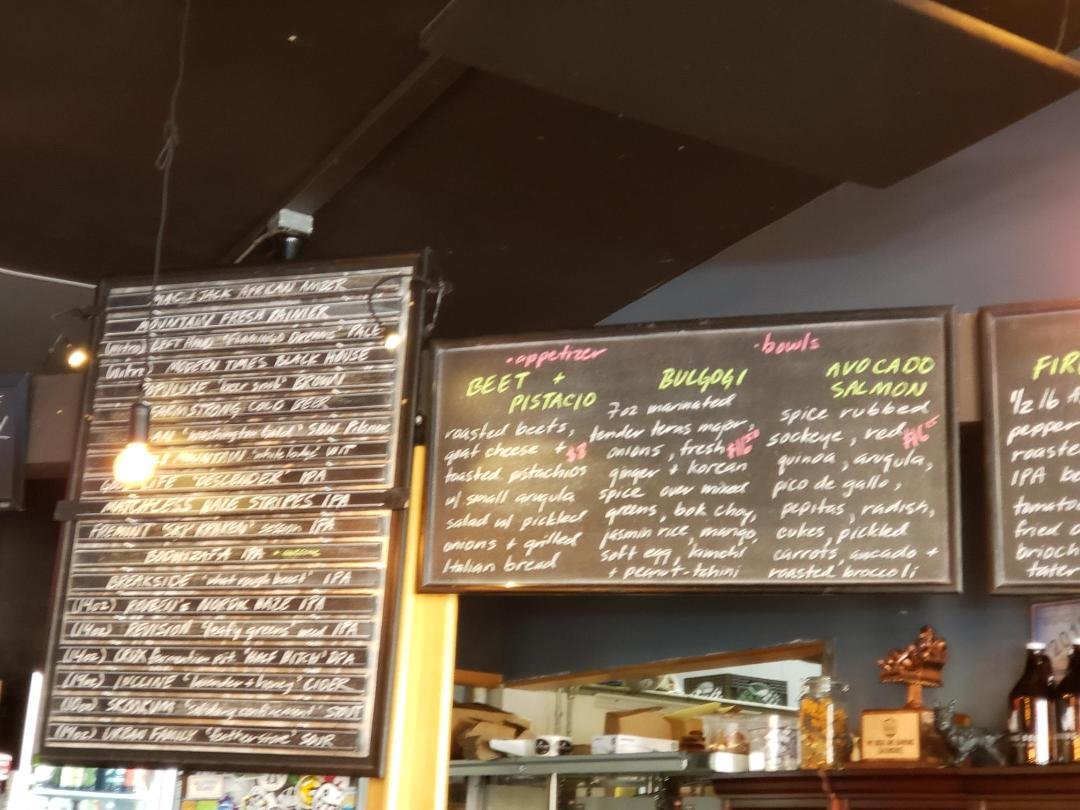 MAC & JACK AFRICAN AMBER
MOUNTAIN FRESH RAINIER
(nitro) LEFT HAND "FLAMINGO DREAMS" PALE
(nitro) MODERN TIMES BLACK HOUSE
BROWN
ARMSTRONG COLD BEER
"washington gold" Pilsner
MOUNTAIN "white lady" WIT
LIFE "DESCENDER" IPA
MATCHLESS HAZE STRIPES IPA
FREMONT "SKY KRAKEN" IPA
BODHIZAFA IPA
BREAKSIDE "what rough beast" IPA
(14oz) REUBEN'S NORDIC HAZE IPA
(14oz) REVISION "leafy greens" IPA
(14oz) CRUX fermentation pit "HALF HITCH" DPA
(14oz) INCLINE "lavender + honey" CIDER
(10oz) SKOOKUM "solidary confinement" STOUT
(14oz) URBAN FAMILY "featherstone" SOUR
•appetizer
BEET +
PISTACIO
roasted beets,
goat cheese + $8
toasted pistachios
w/ small arugula
salad w/ pickled
onions + grilled
Italian bread
•bowls
BULGOGI
7oz marinated
tender teras major,
onions, fresh
ginger + korean
spice over mixed
greens, bok choy,
jasmin rice, mango,
soft egg, kimchi
+ peanut-tahini
AVOCADO
SALMON
spice rubbed
sockeye, red
quinoa, arugula,
pico de gallo,
pepitas, radish,
cukes, pickled
carrots, avocado +
roasted broccoli
FIR
1/2 lb A
pepper
roaste
IPA be
tomato
fried o
brioch
tater